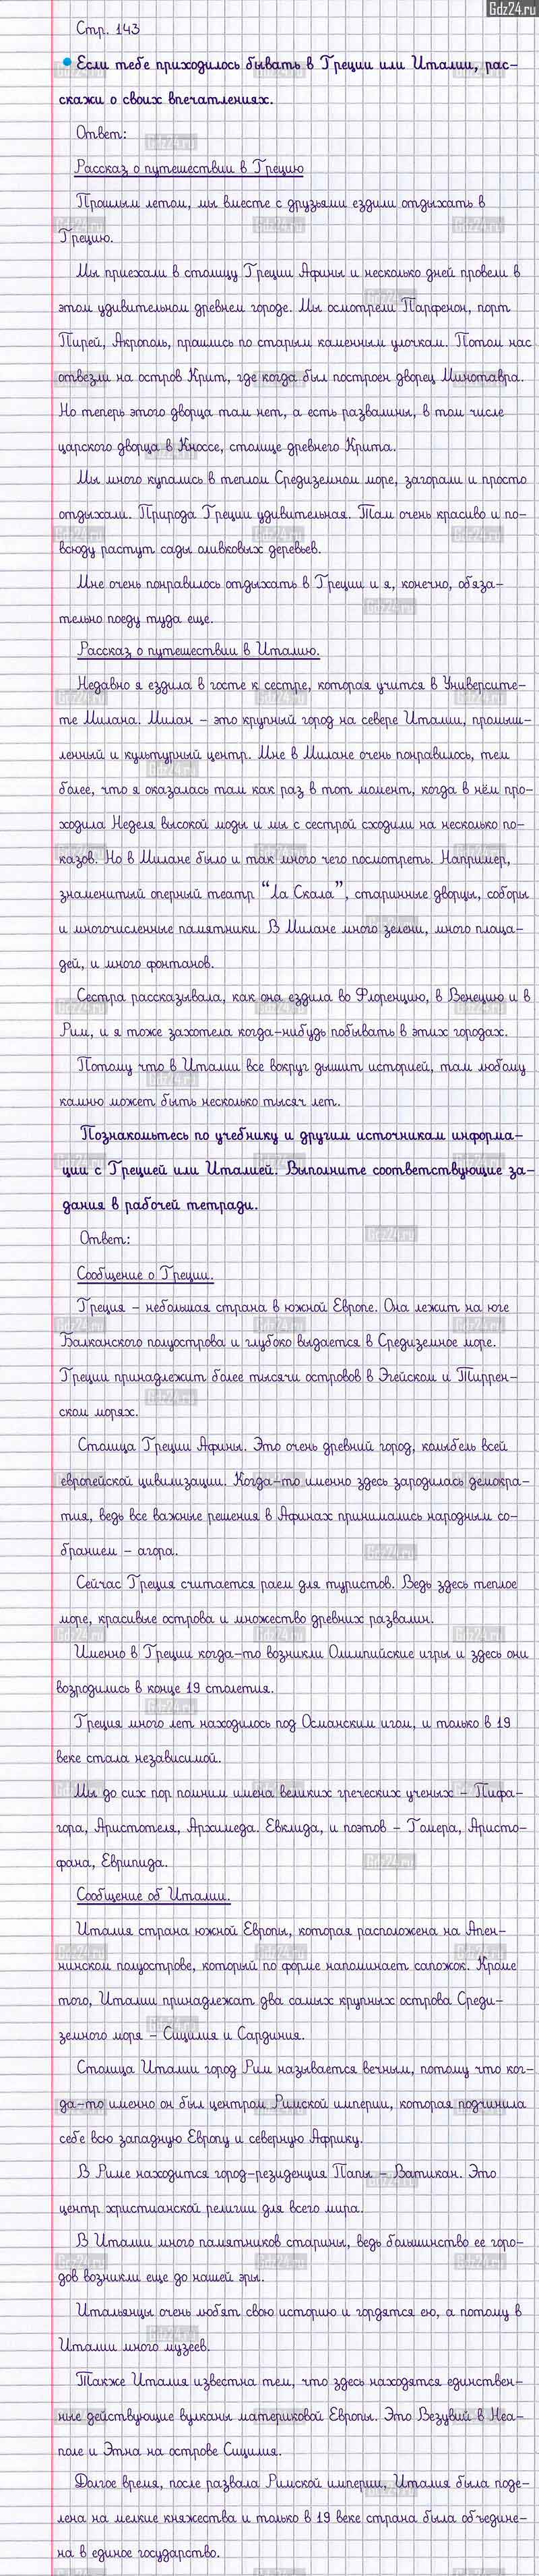 Gdz24.ru
Стр. 143
Если тебе приходилось бывать в Греции или Италии, рас-
скажи о своих впечатлениях.
Ответ:
Рассказ о путешествии в Грецию
Прошлым летом, мы вместе с друзьями ездили отдыхать в
Грецию.
Мы приехали в столицу Греции Афины и несколько дней провели в
этом удивительном древнем городе. Мы осмотрели Парфенон, порт
Пирей, Акрополь, прошлись по старым каменным улочкам. Потом нас
отвезли на остров Крит, где когда был построен дворец Минотавра.
Но теперь этого дворца там нет, а есть развалины, в том числе
царского дворца в Кноссе, столице древнего Крита.
Мы много купались в теплом Средиземном море, загорали и просто
отдыхали. Природа Греции удивительная. Там очень красиво и по-
всюду растут сады оливковых деревьев.
Мне очень понравилось отдыхать в Греции и я, конечно, обяза-
тельно поеду туда еще.
Рассказ о путешествии в Италию.
Недавно я ездила в госте к сестре, которая учится в Университе-
те Милана. Милан – это крупный город на севере Италии, промыш-
ленный и культурный центр. Мне в Милане очень понравилось, тем
более, что я оказалась там как раз в тот момент, когда в нём про-
ходила Неделя высокой моды и мы с сестрой сходили на несколько по-
казов. Но в Милане было и так много чего посмотреть. Например,
знаменитый оперный театр “Ла Скала”, старинные дворцы, соборы
и многочисленные памятники. В Милане много зелени, много площа-
дей, и много фонтанов.
Сестра рассказывала, как она ездила во Флоренцию, в Венецию и в
Рим, и я тоже захотела когда-нибудь побывать в этих городах.
Потому что в Италии все вокруг дышит историей, там любому
камню может быть несколько тысяч лет.
Познакомьтесь по учебнику и другим источникам информа-
ции с Грецией или Италией. Выполните соответствующие за-
дания в рабочей тетради.
Ответ:
Сообщение о Греции.
Греция – небольшая страна в южной Европе. Она лежит на юге
Балканского полуострова и глубоко выдается в Средиземное море.
Греции принадлежит более тысячи островов в Эгейском и Тиррен-
ском морях.
Столица Греции Афины. Это очень древний город, колыбель всей
европейской цивилизации. Когда-то именно здесь зародилась демокра-
тия, ведь все важные решения в Афинах принимались народным со-
бранием – агора.
Сейчас Греция считается раем для туристов. Ведь здесь теплое
море, красивые острова и множество древних развалин.
Именно в Греции когда-то возникли Олимпийские игры и здесь они
возродились в конце 19 столетия.
Греция много лет находилось под Османским игом, и только в 19
веке стала независимой.
Мы до сих пор помним имена великих греческих ученых – Пифа-
гора, Аристотеля, Архимеда. Евклида, и поэтов – Гомера, Аристо-
фана, Еврипида.
Сообщение об Италии.
Италия страна южной Европы, которая расположена на Апен-
нинском полуострове, который по форме напоминает сапожок. Кроме
того, Италии принадлежат два самых крупных острова Среди-
земного моря – Сицилия и Сардиния.
Столица Италии город Рим называется вечным, потому что ког-
да-то именно он был центром Римской империи, которая подчинила
себе всю западную Европу и северную Африку.
В Риме находится город-резиденция Папы – Ватикан. Это
центр христианской религии для всего мира.
В Италии много памятников старины, ведь большинство ее горо-
дов возникли еще до нашей эры.
Итальянцы очень любят свою историю и гордятся ею, а потому в
Италии много музеев.
Также Италия известна тем, что здесь находятся единствен-
ные действующие вулканы материковой Европы. Это Везувий в Неа-
поле и Этна на острове Сицилия.
Долгое время, после развала Римской империи, Италия была поде-
лена на мелкие княжества и только в 19 веке страна была объедине-
на в единое государство.